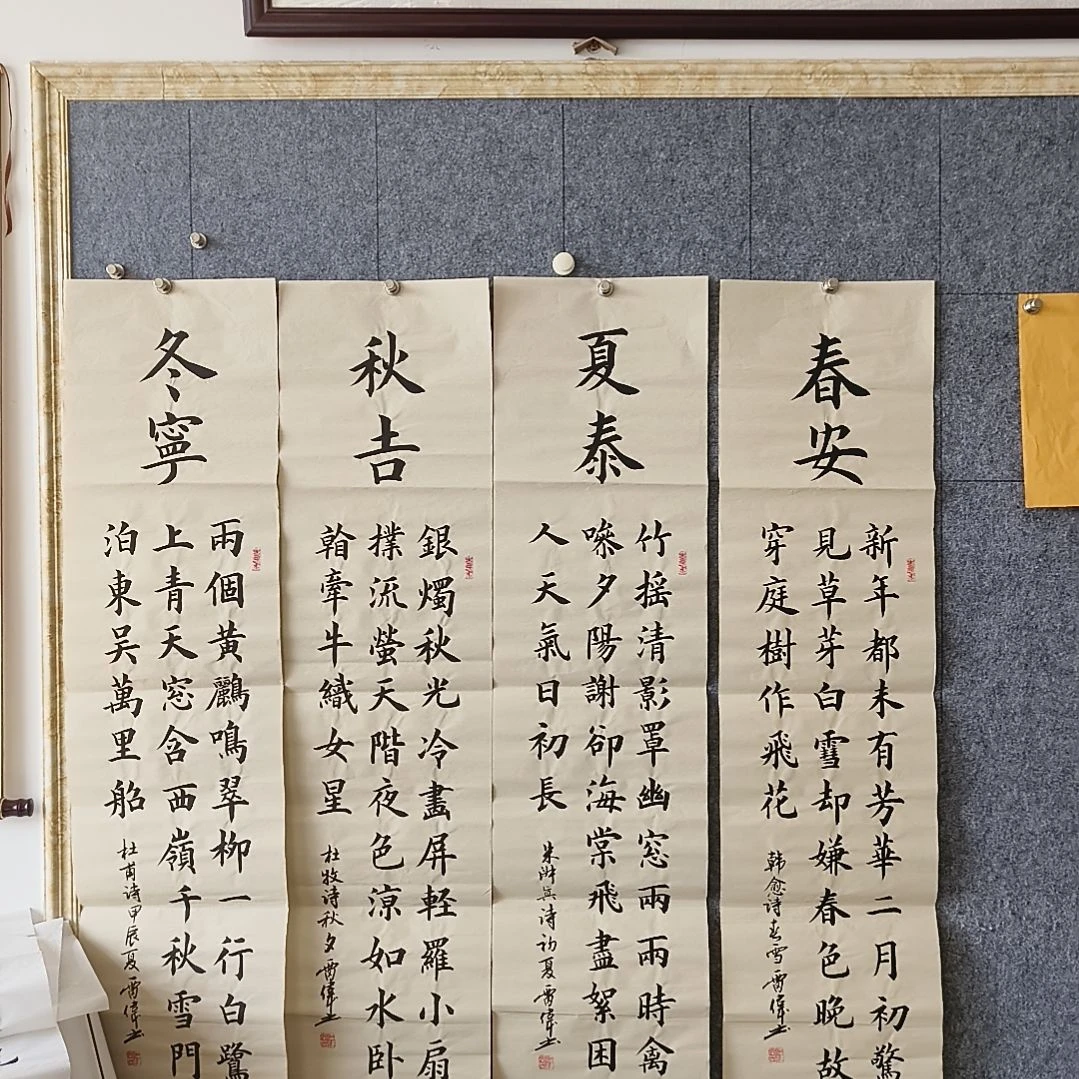 春安
新年都未有芳華二月初驚
見草芽白雪却嫌春色晚故
穿庭樹作飛花
韩愈诗春雪 雷偉书
夏泰
竹摇清影罩幽窓兩兩時禽
噪夕陽謝卻海棠飛盡絮困
人天氣日初長
朱淑真诗初夏 雷偉书
秋吉
銀燭秋光冷畫屏軽羅小扇
撲流螢天階夜色涼如水卧
看牽牛織女星
杜牧诗秋夕 雷偉书
冬寧
兩個黃鸝鳴翠柳一行白鷺
上青天窓含西嶺千秋雪門
泊東吴萬里船
杜甫诗甲辰夏 雷偉书